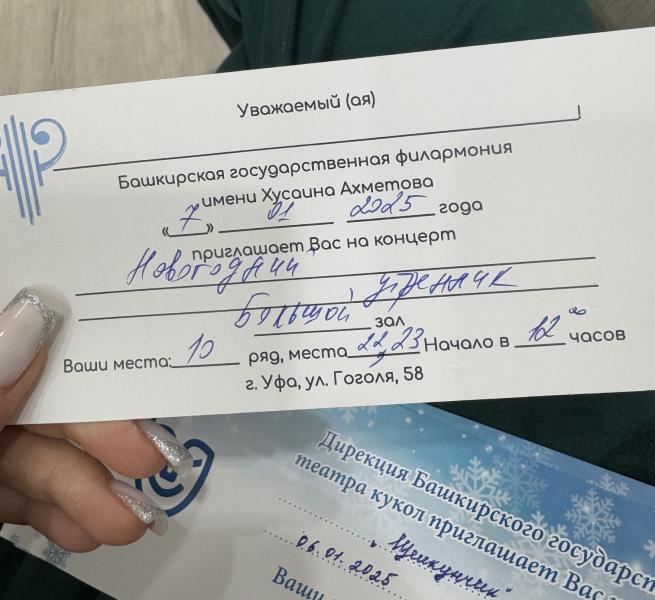 Уважаемый (ая)
Башкирская государственная филармония
имени Хусаина Ахметова
«7» 01 2025 года
приглашает Вас на концерт
Новогодний
утренник
Большой зал
Ваши места: 10 ряд, места 22, 23 Начало в 12 00 часов
г. Уфа, ул. Гоголя, 58
Дирекция Башкирского государст
театра кукол приглашает Вас
"Щелкунчик"
06.01.2025
Ваши